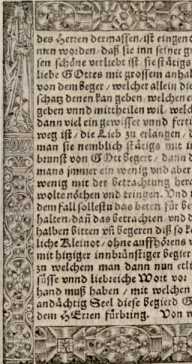 des Herren dermassen/ ist eingeno
nnen worden/ daß sie inn seiner gr
sen schöne verliebt ist sie stätigs
liebe Gottes mit grossem anhal
von dem beger/ welcher allein die
schatz denen kan geben/ welchen
geben vnnd mittheilen wil. welch
dann viel ein gewisser vnnd fert
weg ist/ die Lieb zu erlangen/
man sie nemblich stätigs mit i
brunst von Gott begert/ dann
mans jmmer ein wenig vnd aber
wenig mit der betrachtung here
wolte nöthen vnd tringen. Vnd i
dem fall solle sie das beten für be
halten/ dañ das betrachten/ vnd
halben bitten vñ begeren diß so kö
liche Kleinot/ ohne auffhörens v
mit hitziger innbrünstiger begier
zu welchem man dann nun etli
süsse vnnd liebreiche Wort vor
hand muß haben/ mit welchen
andächtig Seel diese begierd G
dem HErren fürbring. Von w